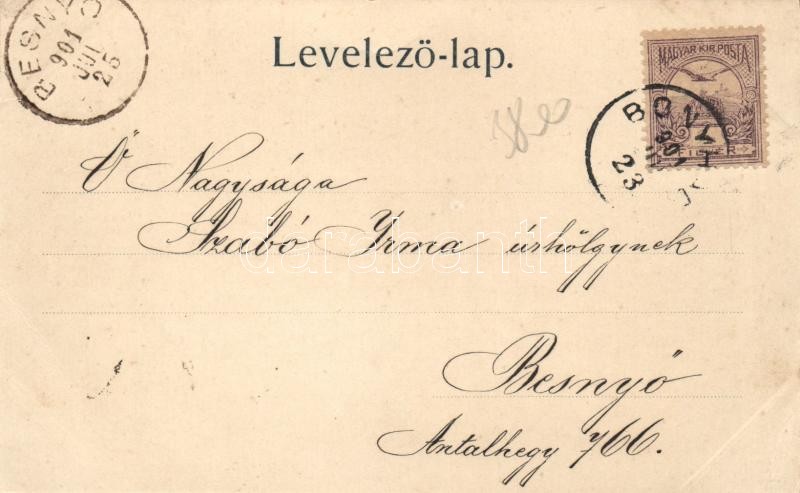 BESNYŐ
901 JUL
25
Levelező-lap.
MAGYAR KIR. POSTA
FILLÉR
BONY
901
23
Ő Nagysága
Szabó Yrma úrhölgynek
darabanth
Besnyő
Antalhegy 766.